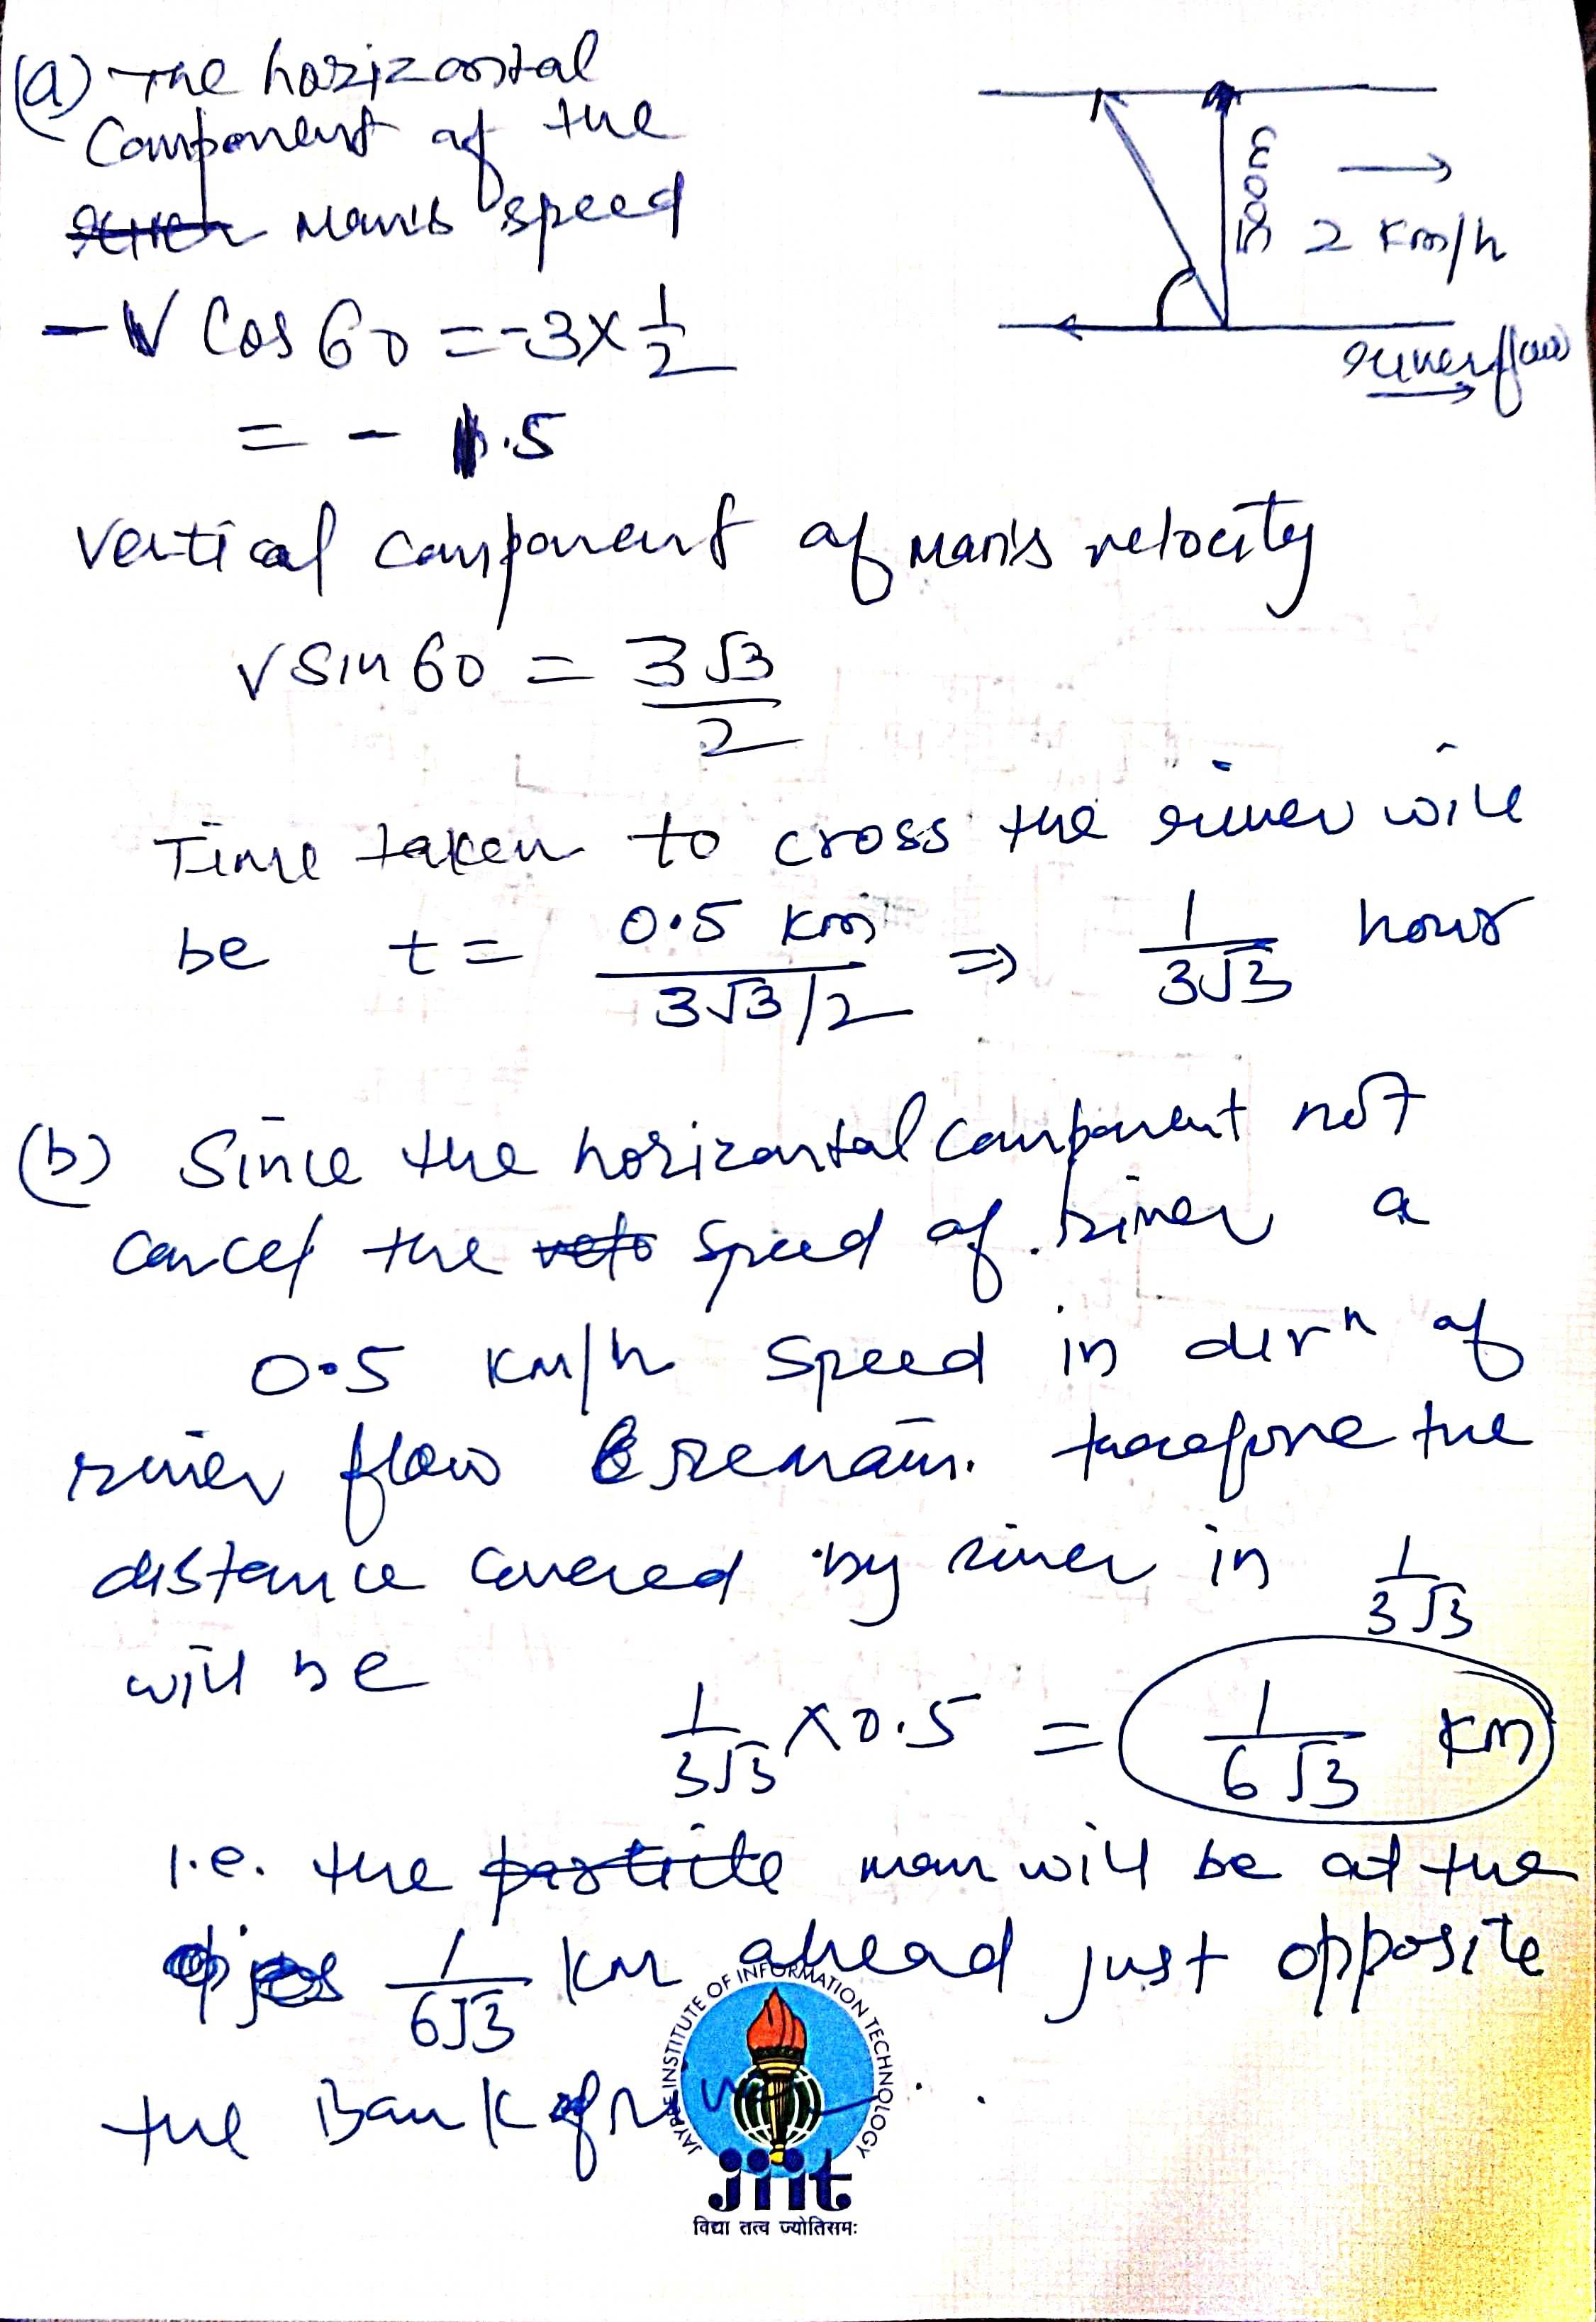 (a) The horizontal
Component of the
Man's speed
- V Cos 60 = -3 × 1/2
= - 1.5
500m
2 Km/h
river flow
Vertical component of Man's velocity
V Sin 60 = 3√3/2
Time taken to cross the river will
be t = 0.5 km / 3√3/2 ⇒ 1/3√3 hour
(b) Since the horizontal component not
cancel the speed of river a
0.5 KM/h speed in dirn of
river flow remain. therefore the
distance covered by river in 1/3√3
will be
1/3√3 × 0.5 = 1/6√3 Km
i.e. the man will be at the
1/6√3 KM ahead just opposite
the Bank of river.
JAYPEE INSTITUTE OF INFORMATION TECHNOLOGY
jiit
विद्या तत्व ज्योतिसमः